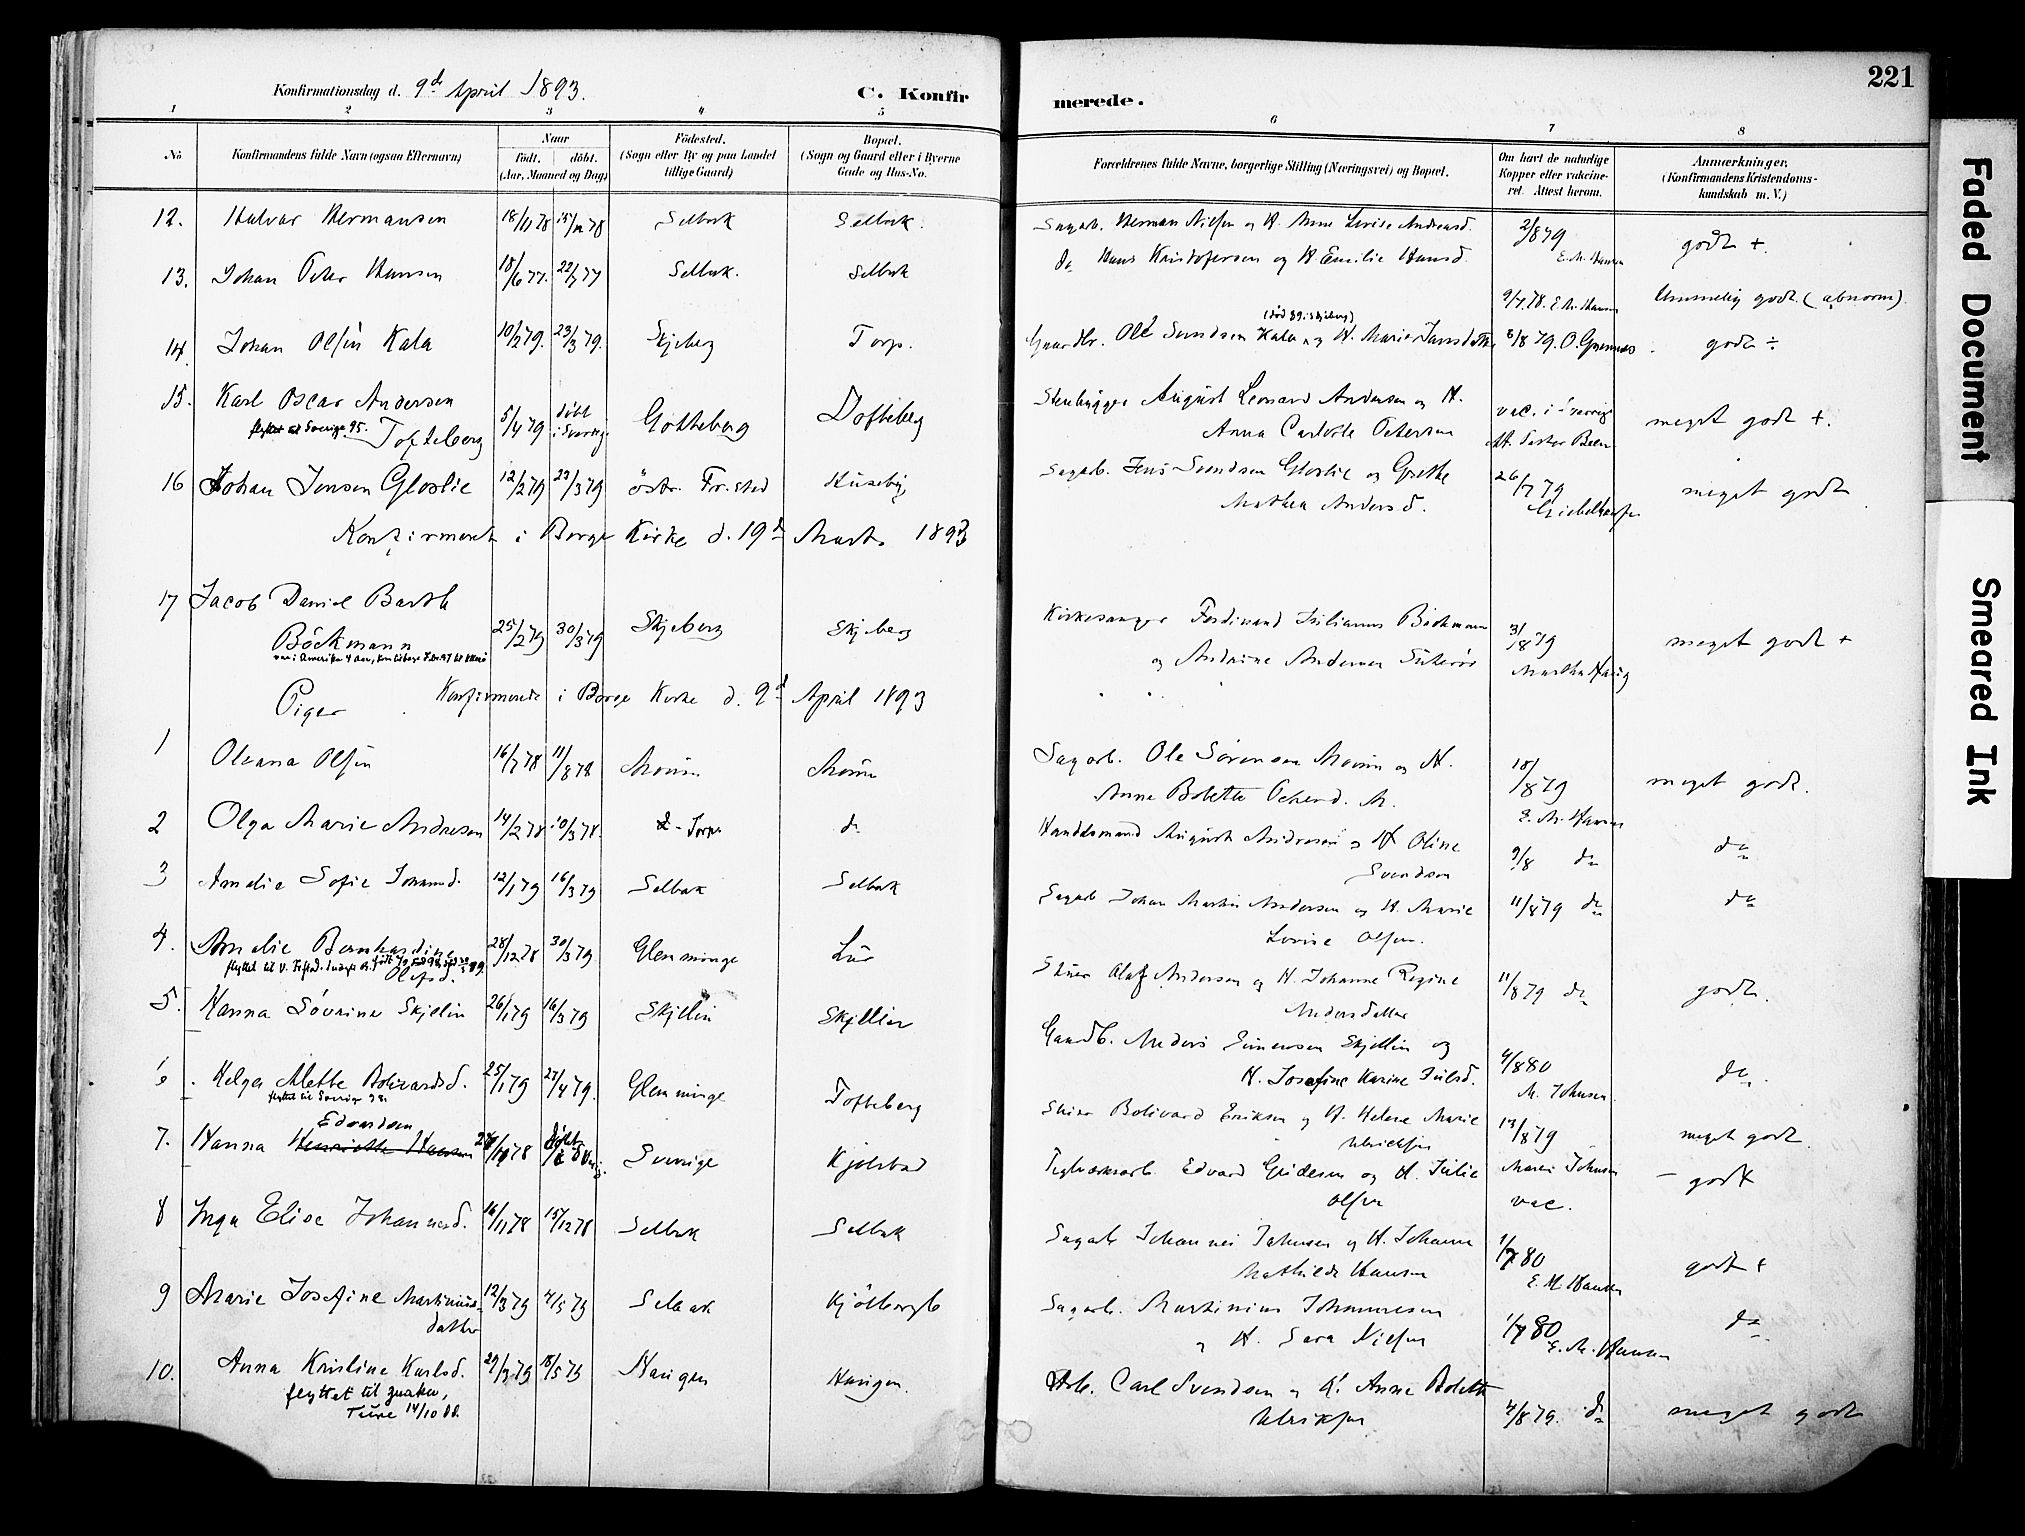 Konfirmationsdag d. 9de April 1893.
C. Konfirmerede.
221
1 2 3 4 5 6 7 8
No
Konfirmandens fulde Navn (ogsaa Efternavn)
Naar
født. døbt.
(Aar, Maaned og Dag)
Fødested.
(Sogn eller By og paa Landet
tillige Gaard)
Bopæl.
(Sogn og Gaard eller i Byerne
Gade og Hus-No.
Forældrenes fulde Navne, borgerlige Stilling (Næringsvei) og Bopæl.
Om havt de naturlige
Kopper eller vakcine-
ret. Attest herom.
Anmærkninger.
(Konfirmandens Kristendoms-
kundskab m. V.)
12. Halvar Hermansen 18/11 78 15/12 78 Selbak Selbak. Sagarb. Herman Nilsen og H. Anne Lovise Andreasd. 2/8 79 E. M. Hansen godt +.
13. Johan Peter Hansen 18/6 77. 22/7 77 Selbak. Selbak do Hans Kristofersen og H. Emilie Hansd. 9/7 78. E. M. Hansen Ummelig godt. (abnorm).
14. Johan Olsen Kala 10/2 79. 23/3 79. Skjeberg Torp. Gaardbr. Ole Svendsen Kala og H. Marie Jansdatter 8/8 79. godt ÷
(død 89 i Skjeberg)
15. Karl Oscar Andersen
flyttet til Sverige 95. Tofteberg 5/4 79 døbt i Sverige Gotteberg Tofteberg
Stenhugger August Leonard Andersen og H.
Anna Carlotte Petersen
vac. i Sverige
meget godt +.
16 Johan Jensen Gloslie 12/2 79 23/3 79 östr. Fr.sted Huseby Sagarb. Jens Svendsen Gloslie og Grethe
Mathea Andersd. 26/7 79 meget godt
Konfirmeret i Borge Kirke d. 19de Marts 1893
17 Jacob Daniel Barth
Böckmann 25/2 79 30/3 79 Skjeberg Skjeberg
var i Amerika 4 Aar,
Kirkesanger Ferdinand Julianus Böckmann
og Andrine Andersen 3/8 79 Martha Haug meget godt +
Piger Konfirmerede i Borge Kirke d. 9d April 1893
1 Oleana Olsen 16/7 78 11/8 78 Moum Moum Sagarb. Ole Sörensen Moum og H.
Anne Bolette Peters d. M. 18/8 79 E. M. Hansen meget godt.
2 Olga Marie Andresen 14/2 78 10/3 78. Torp do Handelsmand August Andresen og H Oline
Svendsen 9/8 do do
3 Amalie Sofie Johansd. 12/1 79 16/3 79 Selbak Selbak Sagarb Johan Martin Andersen og H. Marie
Lovise Olsen. 11/8 79 do do
4. Amalie Bernhardine
Olafsd. 28/12 78 30/3 79 Glemminge Lur Skuer Olaf Andersen og H. Johanne Regine
Andersdatter 11/8 79 do godt.
5. Hanna Sövrine Skjellin 26/1 79 16/3 79 Skjellin Skjellin Gaardb. Anders Simensen Skjellin og
H. Josefine Karine Julsd. 4/8 80 M. Johnsen. do.
6. Helga Alette Bolivardsd. 25/1 79 27/4 79. Glemminge Tofteberg
flyttet til Sverige 98.
Skuer Bolivard Eriksen og H. Helene Marie
Ulriksen 13/8 79 Marie Johnsen meget godt.
7. Hanna Henriette Hansen Edvardsen 11 78 döbt i Sverige Sverige Kjölstad Teglværksarb. Edvard og H. Julie
Olsen vac. godt
8 Inga Elise Johannesd. 16/11 78 15/12 78 Selbak Selbak Sagarb Johannes Johnsen og H. Johanne
Mathilde Hansen 1/7 80 E. M. Hansen godt +
9 Marie Josefine Martinius-
datter 12/3 79 4/5 79 Selbak Kjölberg Sagarb. Martinius Johannesen
og H. Sara Nilsen 1/7 80 E. M. Hansen do
10. Anna Kristine Karlsd. 29/3 79 18/5 79 Haugen Haugen.
flyttet til
Tune 14/10
Arb. Carl Svendsen og H. Anne Bolette
Ulriksen 4/8 79. do meget godt
Faded Document
Smeared Ink